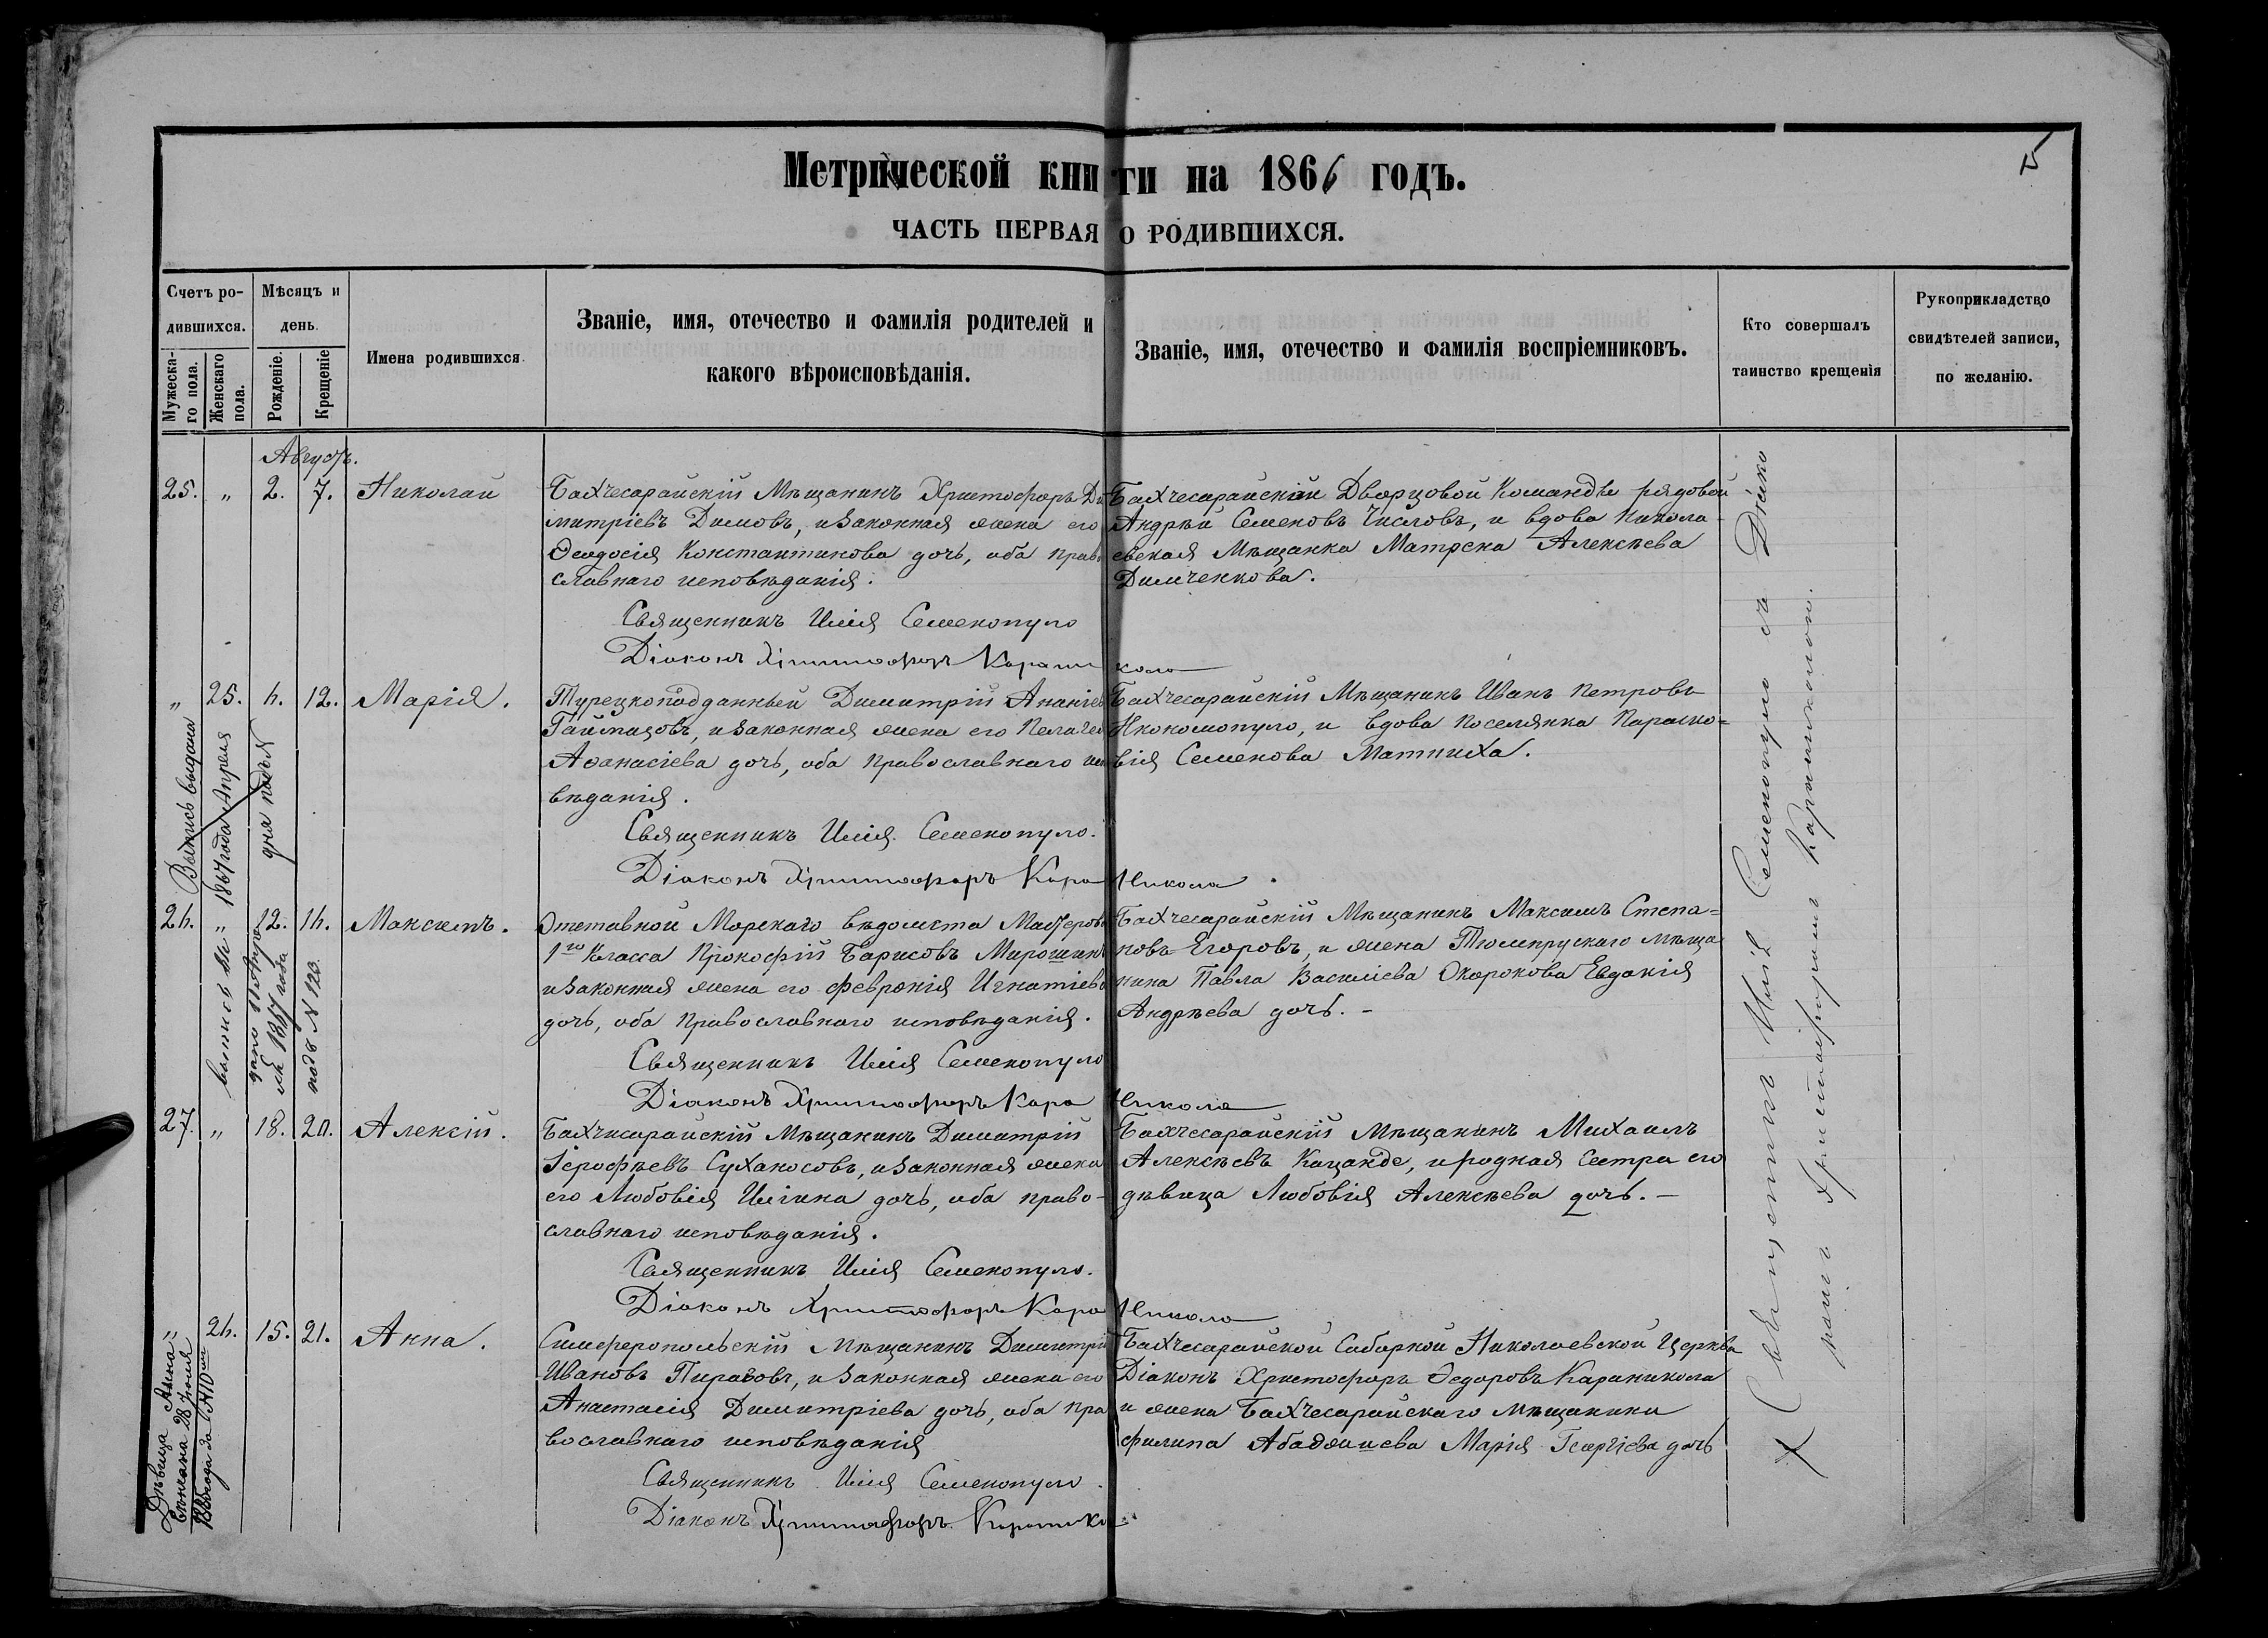 15
Метрической книги на 1866 годъ.
ЧАСТЬ ПЕРВАЯ О РОДИВШИХСЯ.
Счетъ ро-
дившихся.
Мужеска-
го пола.
Женскаго
пола.
Мѣсяцъ и
день.
Рожденіе.
Крещеніе
Имена родившихся.
Званіе, имя, отечество и фамилія родителей и
какого вѣроисповѣданія.
Званіе, имя, отечество и фамилія воспріемниковъ.
Кто совершалъ
таинство крещенія
Рукоприкладство
свидѣтелей записи,
по желанію.
Августъ.
25. „ 2. 7. Николай
Бахчесарайскій Мѣщанинъ Христофоръ Ди
митріевъ Димовъ, и законная жена его
Ѳеодосія Константинова дочь, оба право
славнаго исповѣданія.
Священникъ Илія Семенопуло
Діаконъ Христофоръ Караникола
Бахчесарайскій Дворцовой Команды рядовой
Андрей Семеновъ Числовъ, и вдова Никола-
евская Мѣщанка Матрена Алексѣева
Димченкова.
„ 25. 4. 12. Марія.
Турецкоподданный Димитрій Ананіевъ
Гаймацовъ, и законная жена его Пелагея
Аѳанасіева дочь, оба православнаго испо
вѣданія.
Священникъ Илія Семенопуло.
Діаконъ Христофоръ Караникола
Бахчесарайскій Мѣщанинъ Иванъ Петровъ
Икономопуло, и вдова поселянка Параско=
вія Семенова Матниха.
Выпись выдана
1867 года Апреля
дня подъ №
24. „ 12. 14. Максимъ.
Отставной Морскаго вѣдомства Мастеровой
1го Класса Прокофій Барисовъ Мирошник
и законная жена его Февронія Игнатіева
дочь, оба православнаго исповѣданія.
Священникъ Илія Семенопуло
Діаконъ Христофоръ Караникола
Бахчесарайскій Мѣщанинъ Максимъ Степа=
новъ Егоровъ, и жена Тюмирускаго мѣща
нина Павла Василіева Окорокова Евдокія
Андрѣева дочь. -
выпись вы
дана 11 Апре
ля 1867 года
подъ № 120.
27. „ 18. 20. Алексій.
Бахчисарайскій Мѣщанинъ Димитрій
Іерофѣевъ Суханосовъ, и законная жена
его Любовія Ильина дочь, оба право-
славнаго исповѣданія.
Священникъ Илія Семенопуло.
Діаконъ Христофоръ Караникола
Бахчесарайскій Мѣщанинъ Михаилъ
Алексѣевъ Кацанде, и родная сестра его
дѣвица Любовія Алексѣева дочь. -
„ 26. 15. 21. Анна.
Симферопольскій Мѣщанинъ Димитрій
Ивановъ Пиразовъ, и законная жена его
Анастасія Димитріева дочь, оба пра
вославнаго исповѣданія
Священникъ Илія Семенопуло.
Діаконъ Христофоръ Караникола
Бахчесарайской Соборной Николаевской Церкви
Діаконъ Христофоръ Ѳедоровъ Караникола
и жена Бахчесарайскаго мѣщанина
Филипа Абаджиева Марія Георгіева дочь
Дѣвица Анна
вѣнчана 28 Іюня
1885 года за № 10
Священникъ Илія Семенопуло съ Діако
номъ Христофоромъ Караниколою.